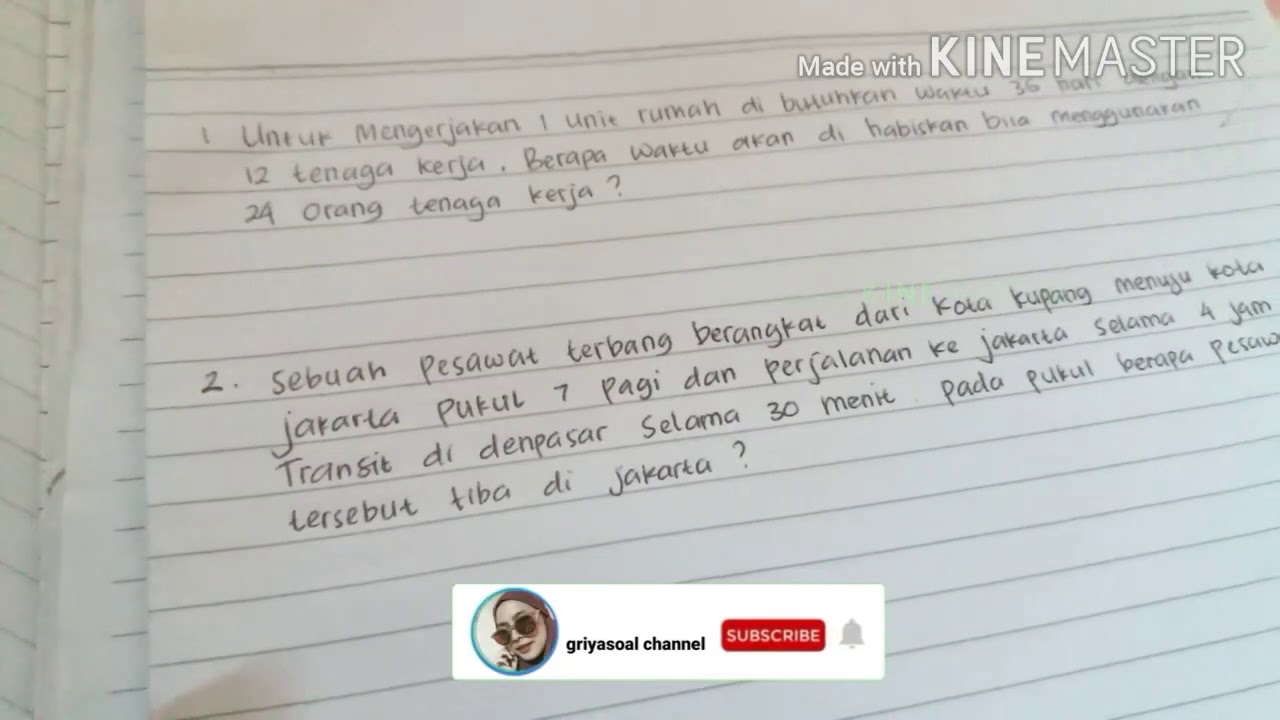 Made with KINEMASTER
1 Untuk Mengerjakan 1 unit rumah di butuhkan waktu 36 hari dengan
12 tenaga kerja. Berapa waktu akan di habiskan bila menggunakan
24 orang tenaga kerja?
2. Sebuah pesawat terbang berangkat dari kota kupang menuju kota
jakarta pukul 7 pagi dan perjalanan ke jakarta selama 4 jam
Transit di denpasar selama 30 menit. pada pukul berapa pesaw
tersebut tiba di jakarta?
griyasoal channel
SUBSCRIBE